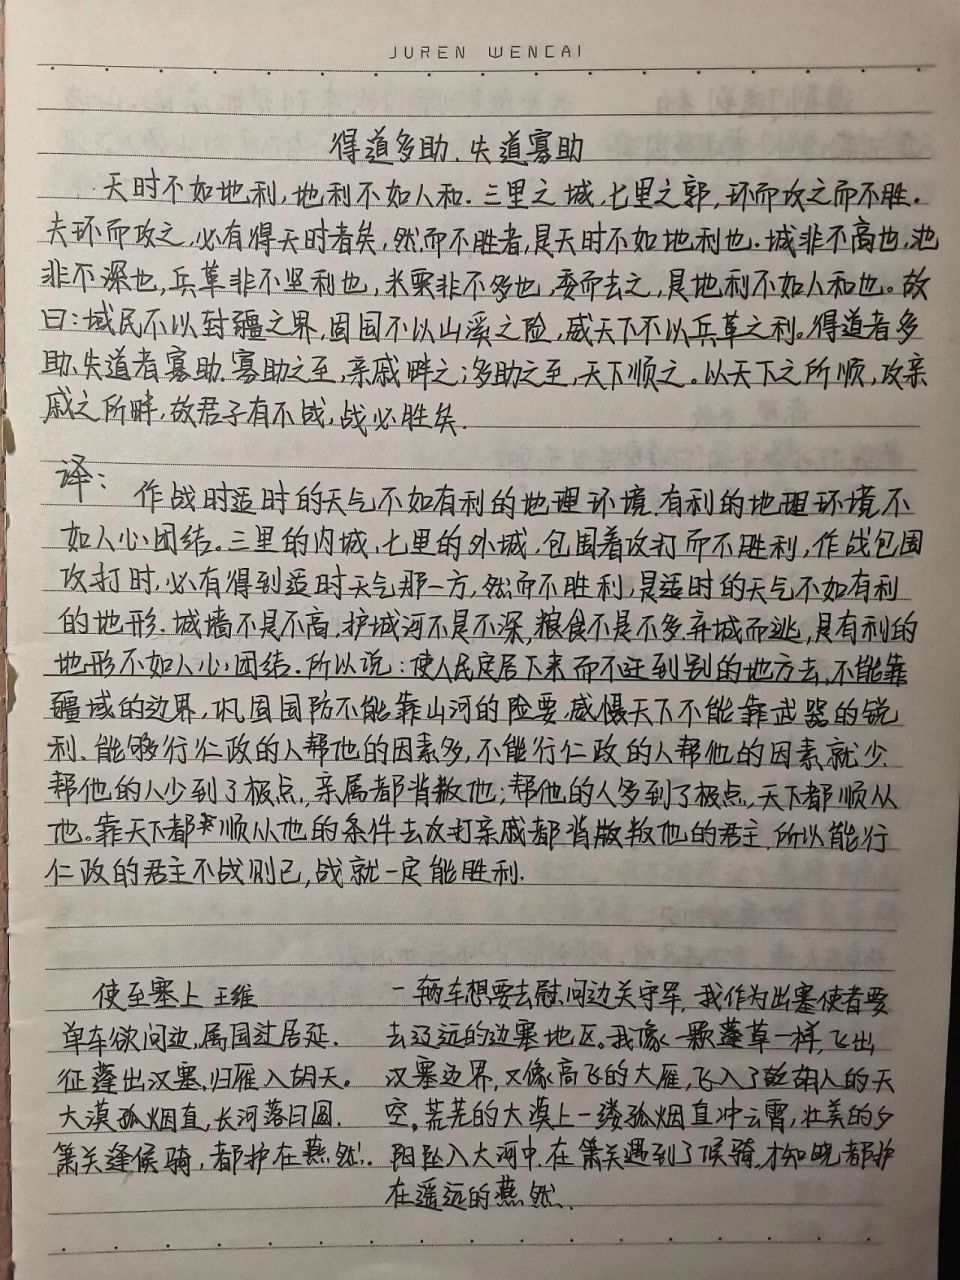 JUREN WENCAI
得道多助、失道寡助
天时不如地利,地利不如人和.三里之城,七里之郭,环而攻之而不胜.
夫环而攻之,必有得天时者矣,然而不胜者,是天时不如地利也.城非不高也,池
非不深也,兵革非不坚利也,米粟非不多也,委而去之,是地利不如人和也。故
曰:域民不以封疆之界,固国不以山溪之险,威天下不以兵革之利。得道者多
助、失道者寡助.寡助之至,亲戚畔之;多助之至,天下顺之。以天下之所顺,攻亲
戚之所畔,故君子有不战,战必胜矣.
译:作战时适时的天气不如有利的地理环境.有利的地理环境不
如人心团结。三里的内城,七里的外城,包围着攻打而不胜利,作战包围
攻打时,必有得到适时天气那一方,然而不胜利,是适时的天气不如有利
的地形.城墙不是不高,护城河不是不深,粮食不是不多.弃城而逃,是有利的
地形不如人心团结.所以说:使人民定居下来而不迁到别的地方去,不能靠
疆域的边界,巩固国防不能靠山河的险要,威慑天下不能靠武器的锐
利、能够行仁政的人帮他的因素多,不能行仁政的人帮他的因素就少.
帮他的人少到了极点,亲属都背叛他;帮他的人多到了极点,天下都顺从
他。靠天下都顺从他的条件去攻打亲戚都背叛他的君主.所以能行
仁政的君主不战则已,战就一定能胜利.
使至塞上 王维
单车欲问边,属国过居延.
征蓬出汉塞,归雁入胡天。
大漠孤烟直,长河落日圆.
萧关逢候骑,都护在燕然.
一辆车想要去慰问边关守军,我作为出塞使者要
去辽远的边塞地区。我像一颗蓬草一样,飞出
汉塞边界,又像高飞的大雁,飞入了胡人的天
空,荒芜的大漠上一缕孤烟直冲云霄,壮美的夕
阳坠入大河中.在萧关遇到了候骑,才知晓都护
在遥远的燕然.